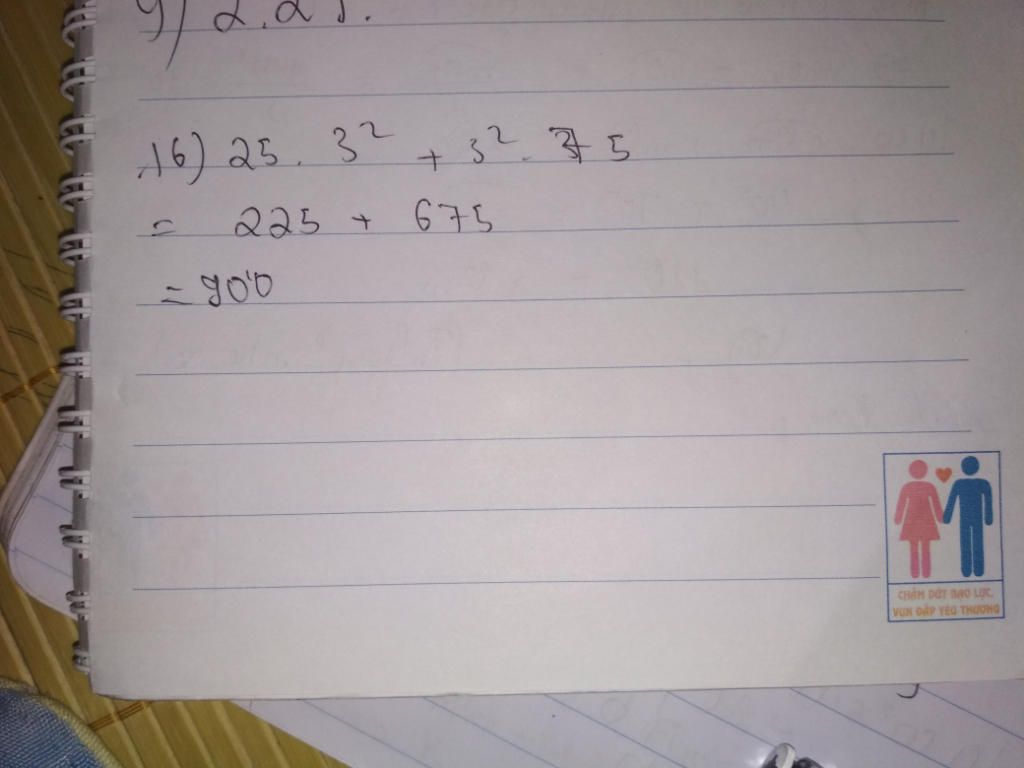 9) 2.25.
16) 25 . 3² + 3² . 75
= 225 + 675
= 900
CHẤM DỨT BẠO LỰC,
VUN ĐẮP YÊU THƯƠNG